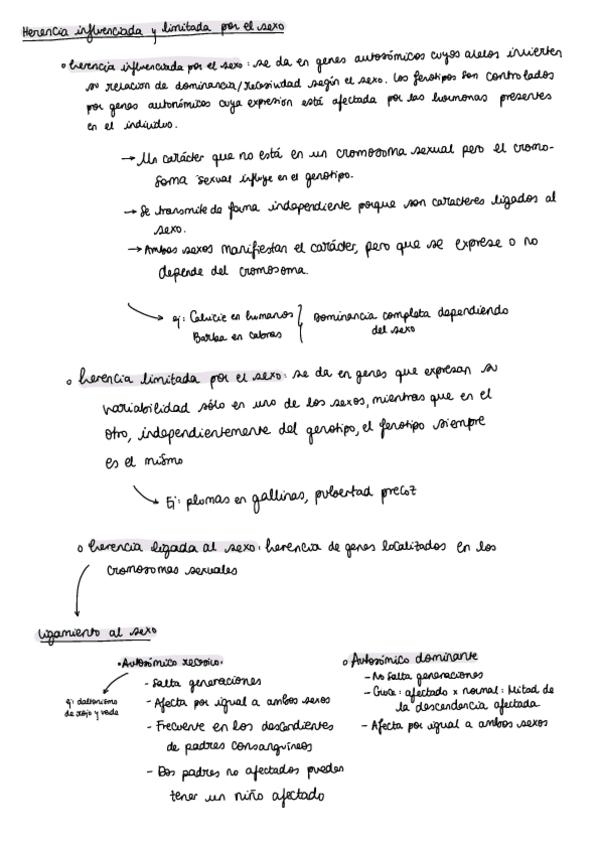 Herencia influenciada y limitada por el sexo
◦ herencia influenciada por el sexo: se da en genes autosómicos cuyos alelos invierten
su relación de dominancia/recesividad según el sexo. Los fenotipos son controlados
por genes autonómicos cuya expresión está afectada por las hormonas presentes
en el individuo.
→ Un carácter que no está en un cromosoma sexual pero el cromo-
soma sexual influye en el genotipo.
→ Se transmite de forma independiente porque son caracteres ligados al
sexo.
→ Ambos sexos manifiestan el carácter, pero que se exprese o no
depende del cromosoma.
ej: Calvicie en humanos
Barba en cabras
Dominancia completa dependiendo
del sexo
◦ herencia limitada por el sexo: se da en genes que expresan su
variabilidad sólo en uno de los sexos, mientras que en el
otro, independientemente del genotipo, el fenotipo siempre
es el mismo
Ej: plumas en gallinas, pubertad precoz
◦ herencia ligada al sexo: herencia de genes localizados en los
cromosomas sexuales
Ligamiento al sexo
• Autosómico recesivo.
- Salta generaciones
ej: daltonismo
de rojo y verde
- Afecta por igual a ambos sexos
- Frecuente en los descendientes
de padres consanguíneos
- Dos padres no afectados pueden
tener un niño afectado
◦ Autosómico dominante
- No salta generaciones
- Cruce: afectado x normal: Mitad de
la descendencia afectada
- Afecta por igual a ambos sexos